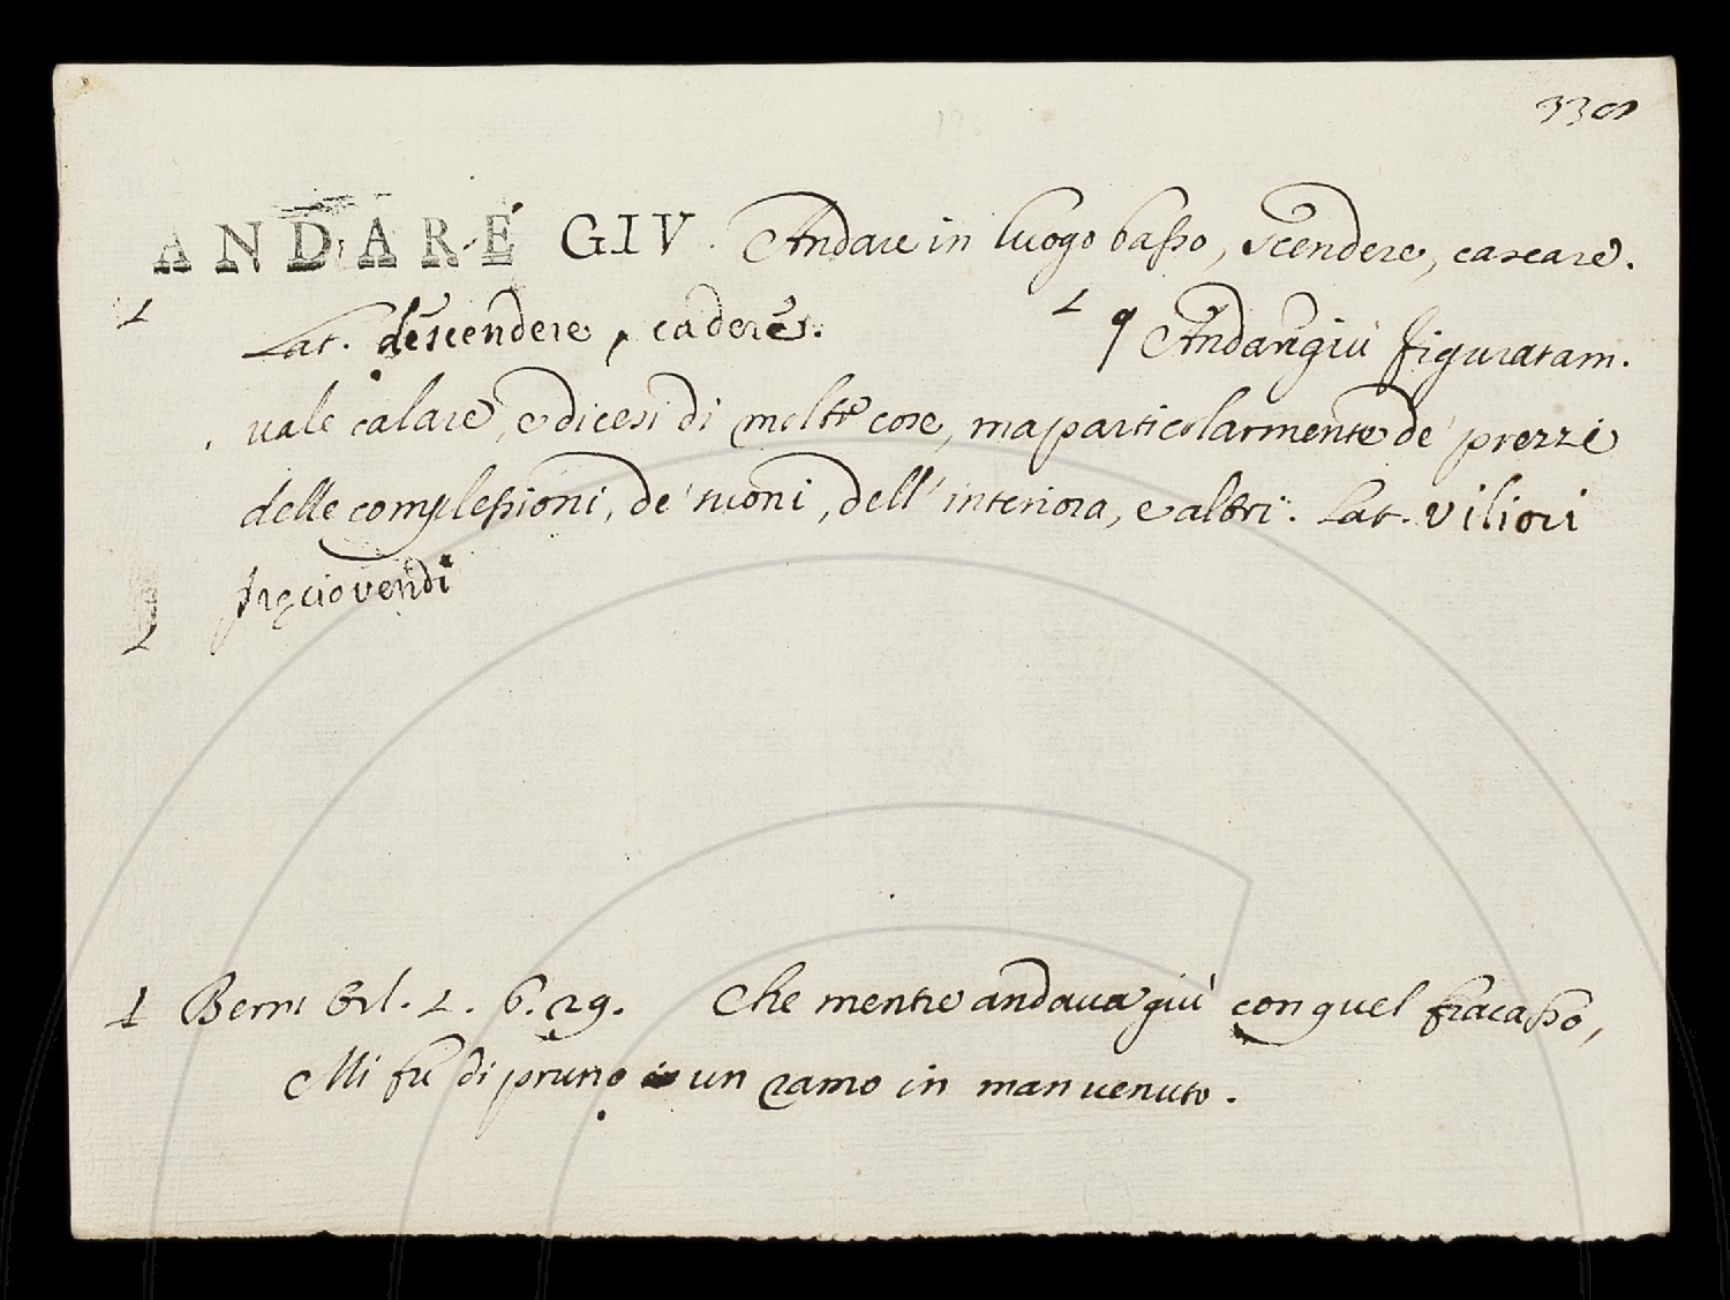 3308
ANDARE GIV. Andare in luogo basso, scendere, cascare.
Lat. descendere, cadere.
¶ Andar giù figuratam.
vale calare, e dicesi di molte cose, ma particolarmente de' prezzi
delle complessioni, de' suoni, dell' interiora, e altri. Lat. viliori
precio vendi
1 Bern. Orl. 1. 6. 29. Che mentre andava giù con quel fracasso,
Mi fu di pruno un ramo in man venuto.